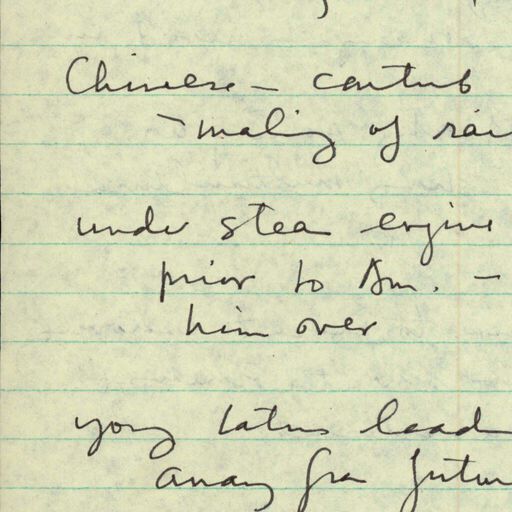 Chinese – contrib
– making of rai
under steam engine
prior to Am. –
him over
young latins lead
away from futur